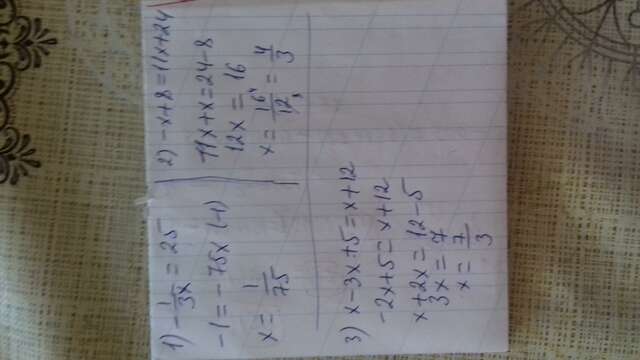 1) -1/3x = 25
-1 = -75x (-1)
x = 1/75
2) -x+8=11x+24
11x+x=24-8
12x = 16
x = 16/12 = 4/3
3) x-3x+5=x+12
-2x+5=x+12
x+2x=12-5
3x=7
x=7/3